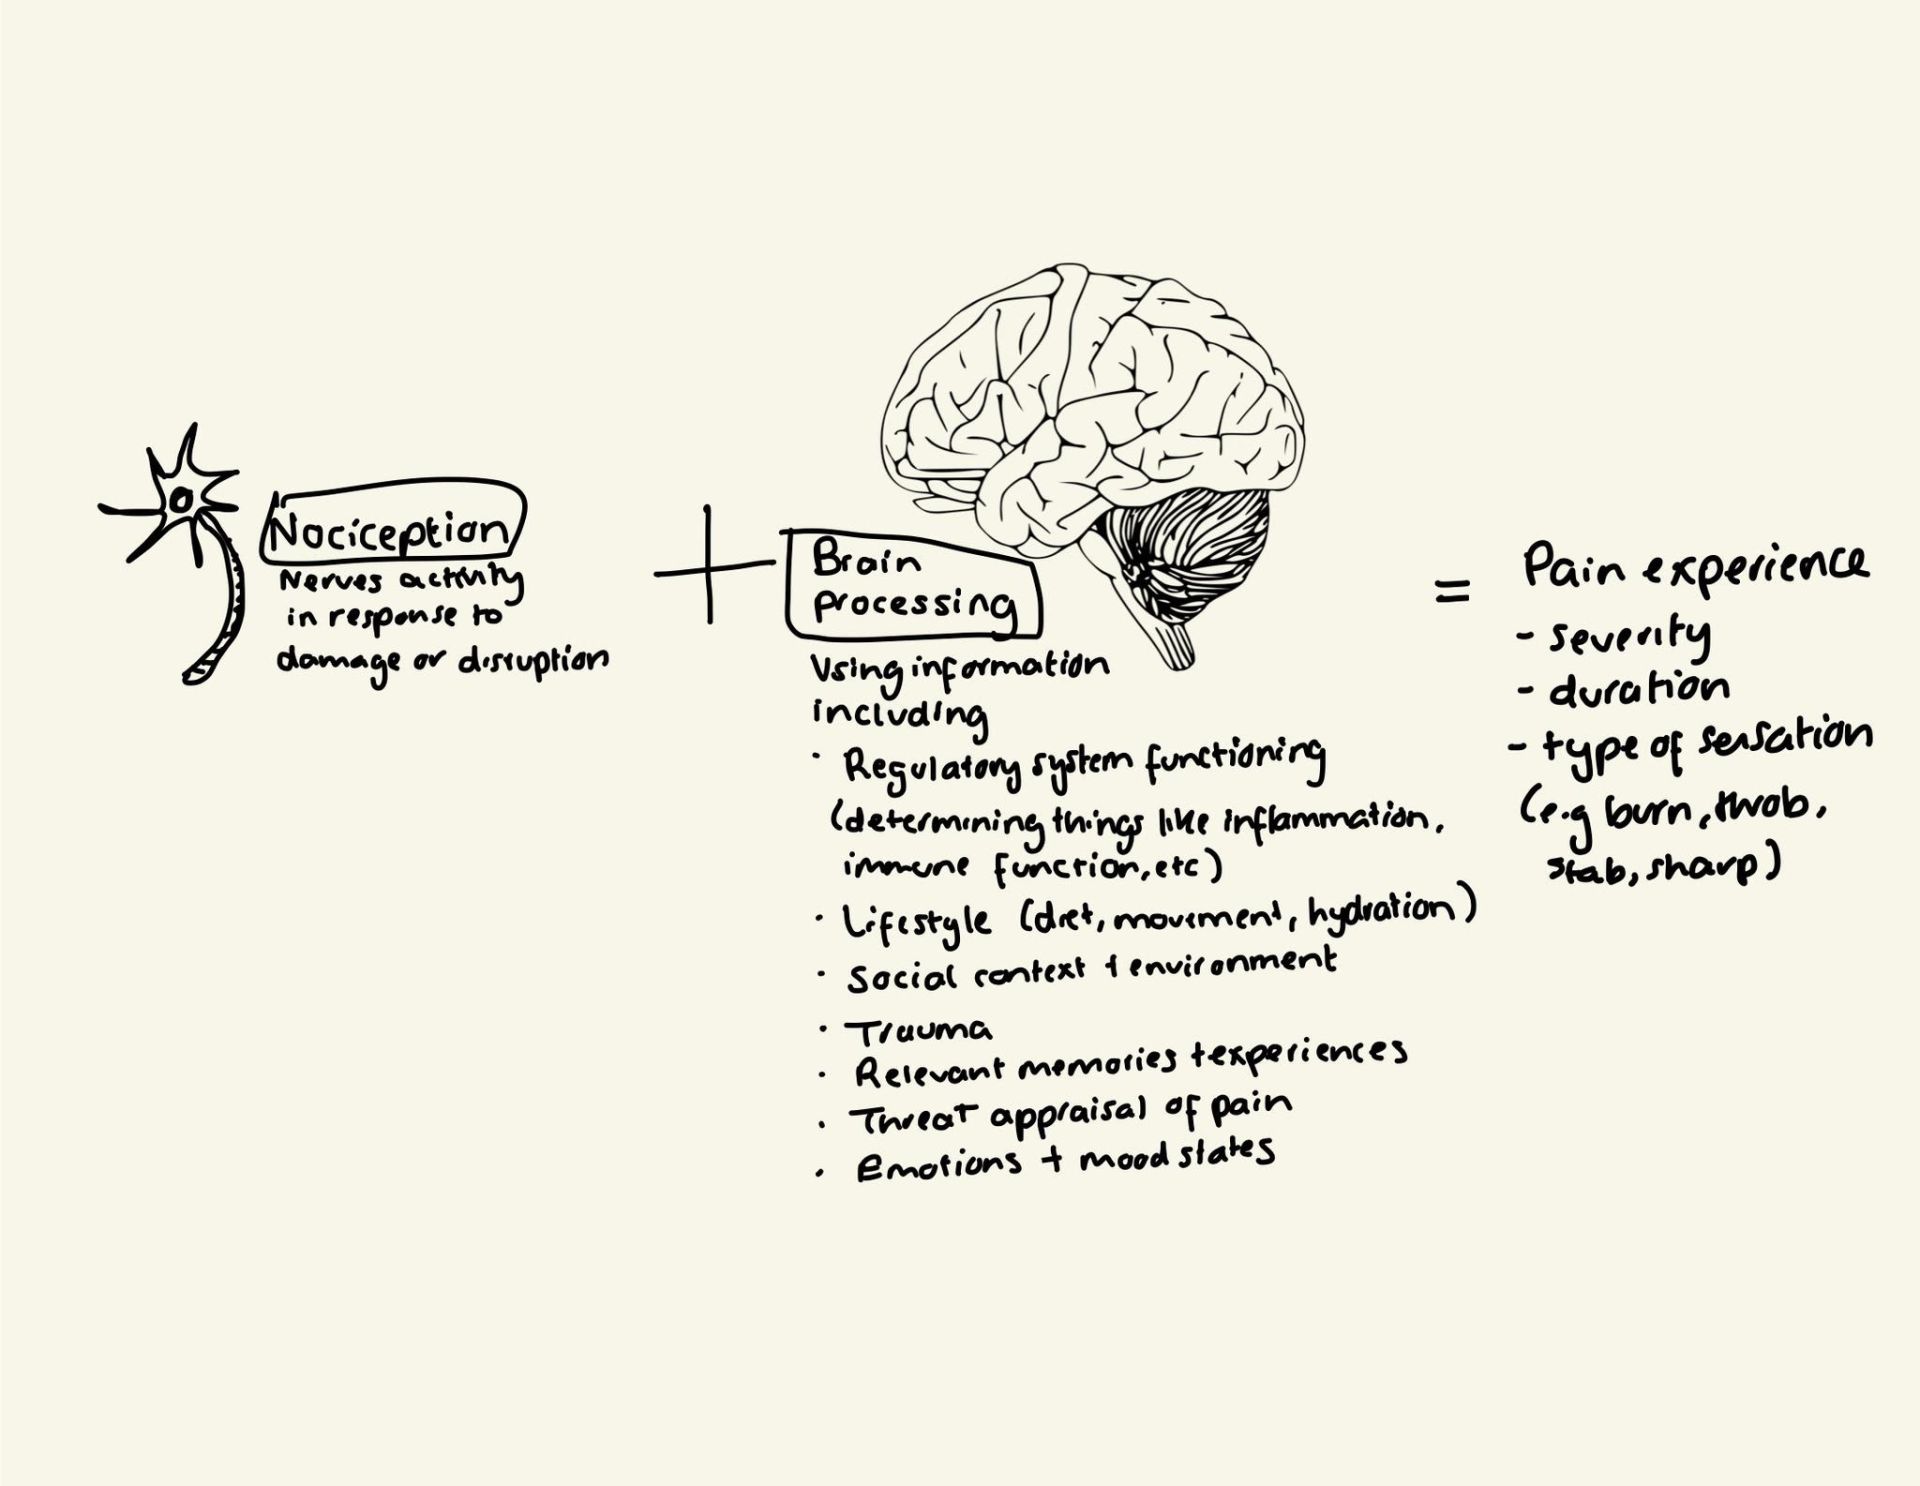 Nociception
Nerves activity
in response to
damage or disruption
+
Brain
processing
Using information
including
· Regulatory system functioning
(determining things like inflammation,
immune function, etc)
· Lifestyle (diet, movement, hydration)
· Social context + environment
· Trauma
· Relevant memories + experiences
· Threat appraisal of pain
· Emotions + mood states
= Pain experience
- severity
- duration
- type of sensation
(e.g burn, throb,
stab, sharp)